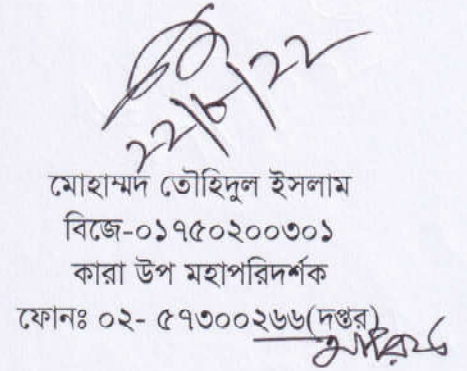 ২২/৮/২২
মোহাম্মদ তৌহিদুল ইসলাম
বিজে-০১৭৫০২০০৩০১
কারা উপ মহাপরিদর্শক
ফোনঃ ০২- ৫৭৩০০২৬৬(দপ্তর)